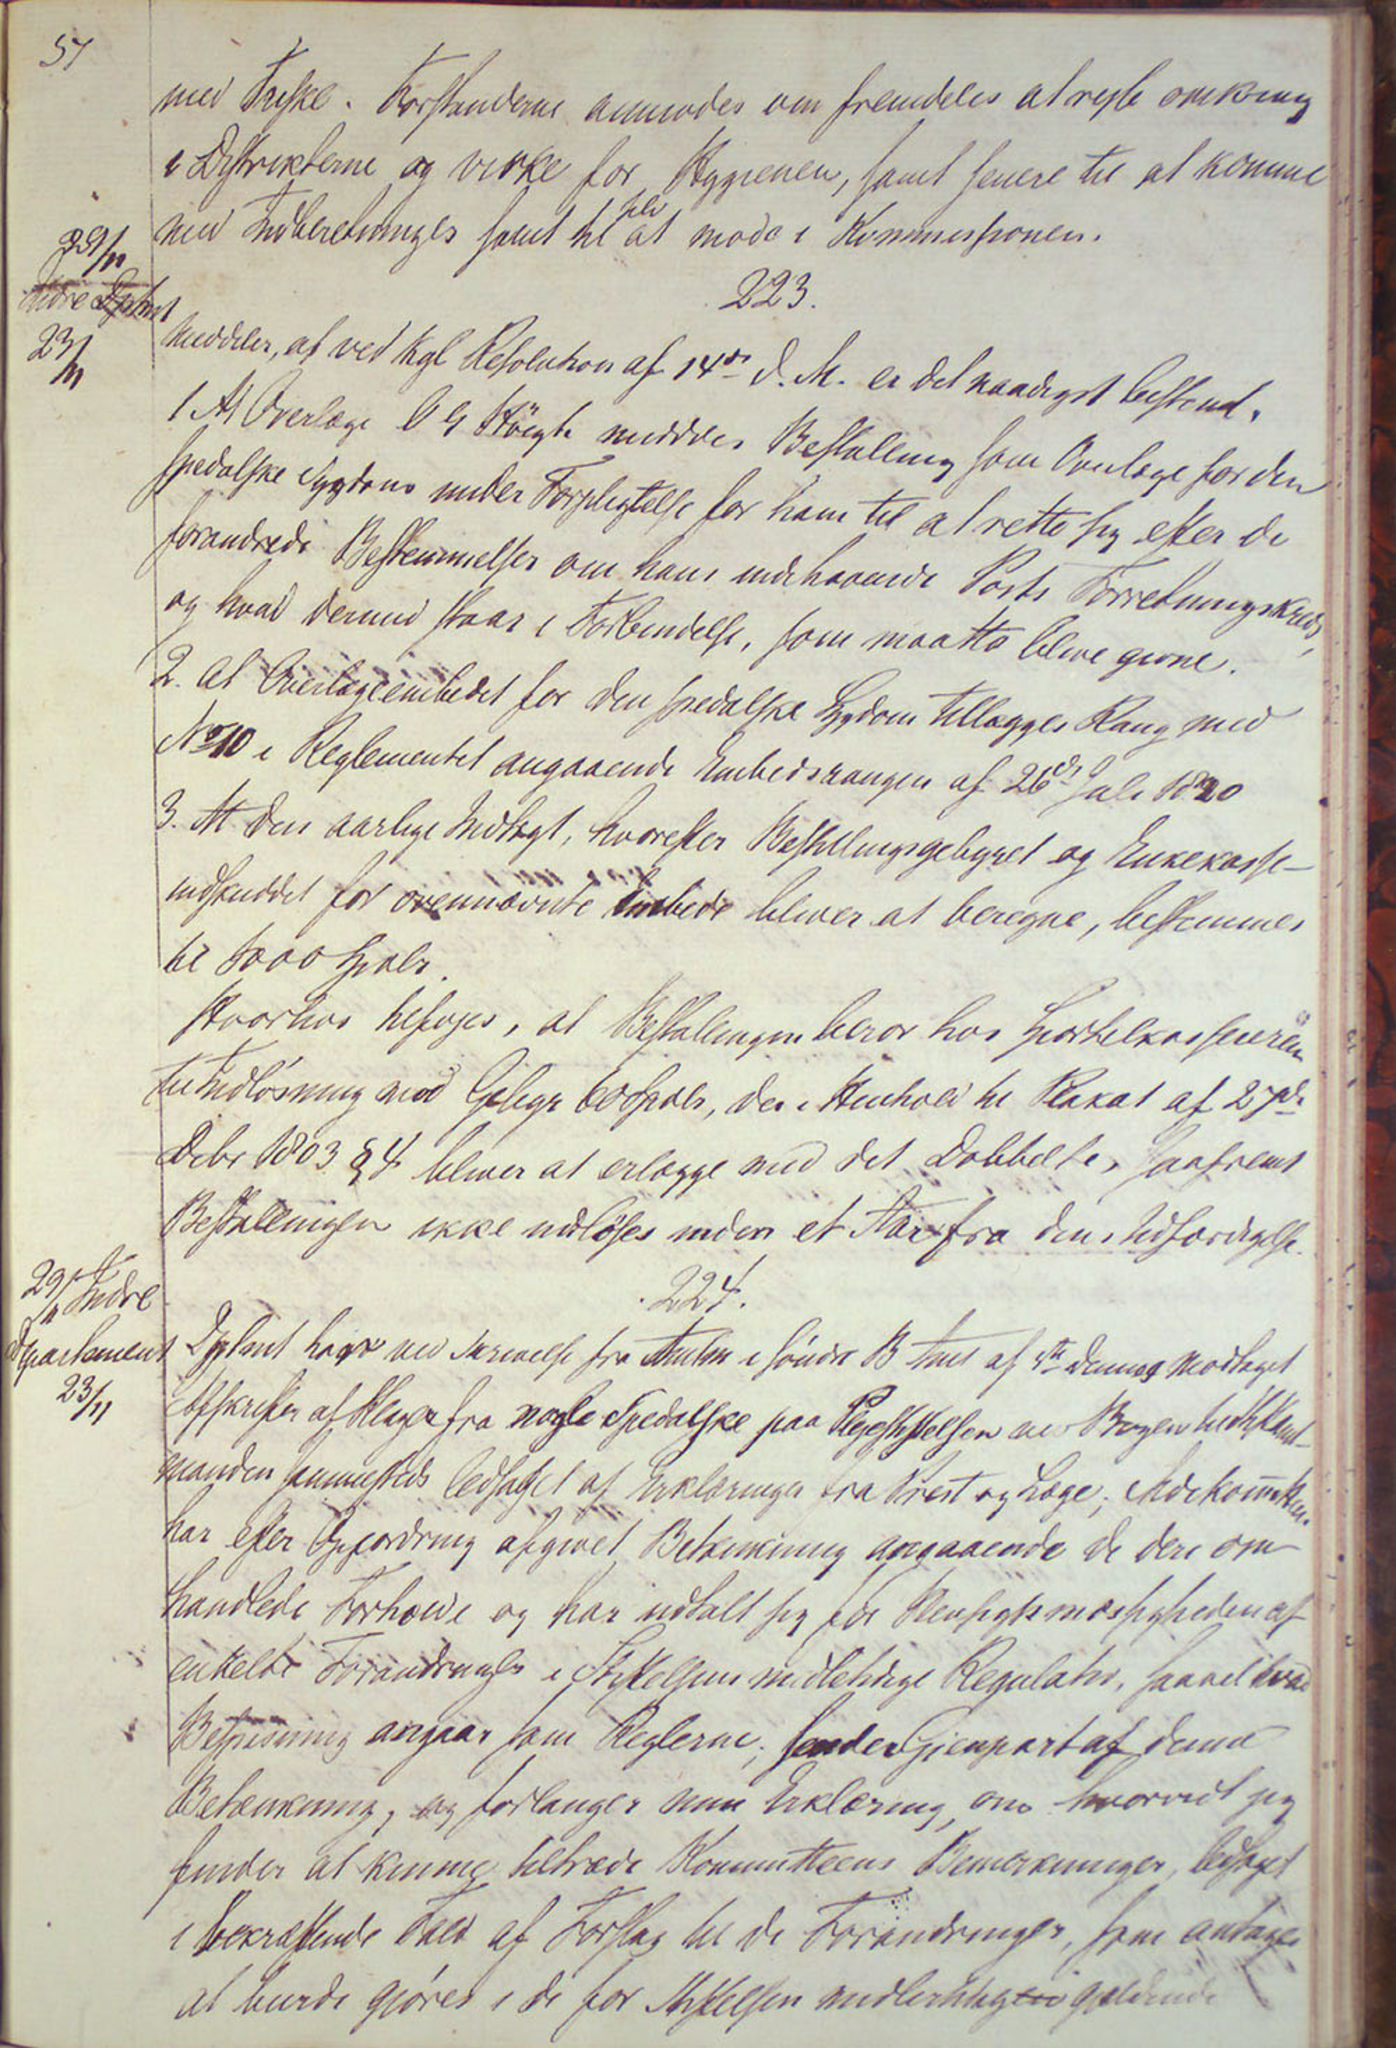 57
med Friske. Forstanderne anmodes om fremdeles at reise omkring
i Distrikterne og virke for Hygienen, samt senere til at komme
med Indberetninger samt til selv at møde i Kommissionen.
29/11
Indre Dptmt
23/11
223.
Meddeler, at ved Kgl Resolution af 14de d. M. er det naadigst bestemt,
1 At Overlæge O G Höegh meddeles Bestalling som Overlæge for den
spedalske Sygdom under Forpligtelse for ham til at rette sig efter de
forandrede Bestemmelser om hans indehavende Posts Forretningskreds,
og hvad dermed staar i Forbindelse, som maatte blive givne.
2. At Overlægeembedet for den spedalske Sygdom tillægges Rang med
No 10 i Reglementet angaaende Embedsrangen af 26de Juli 1820
3. At den aarlige Indtægt, hvorefter Bestallingsgebyret og Enkekasse-
indskuddet for ovennævnte Embede bliver at beregne, bestemmes
til 1000 Spdlr.
Hvorhos tilføjes, at Bestallingen beror hos Sportelkassereren
til Indløsning mod Gebyr 60 Spdlr, der i Henhold til Plakat af 27de
Debr 1803 § 4 bliver at erlægge med det Dobbelte, saafremt
Bestallingen ikke indløses inden et Aar fra dens Udfærdigelse.
29/11 Indre
Departement
23/11
224.
Dptmt har ved Skrivelse fra Amtm i søndre B Amt af 5te dennes modtaget
Afskrifter af Klager fra nogle Spedalske paa Plejestiftelsen ved Bergen til
manden sammesteds ledsaget af Erklæringer fra Præst og Læge;
har efter Opfordring afgivet Betænkning angaaende de deri om-
handlede Forholde og har udtalt sig for Hensigtsmæssigheden af
enkelte Forandringer i Stiftelsens midlertidige Regulativ, saavel hvad
Bespisning angaar som Reglerne; sender Gjenpart af denne
Betænkning, og forlanger min Erklæring, om hvorvidt jeg
finder at kunne tiltræde Kommitteens Bemærkninger, ledsaget
i bekræftende Fald af Forslag til de Forandringer, som antages
at burde gjøres i de for Stiftelsen midlertidig gjeldende